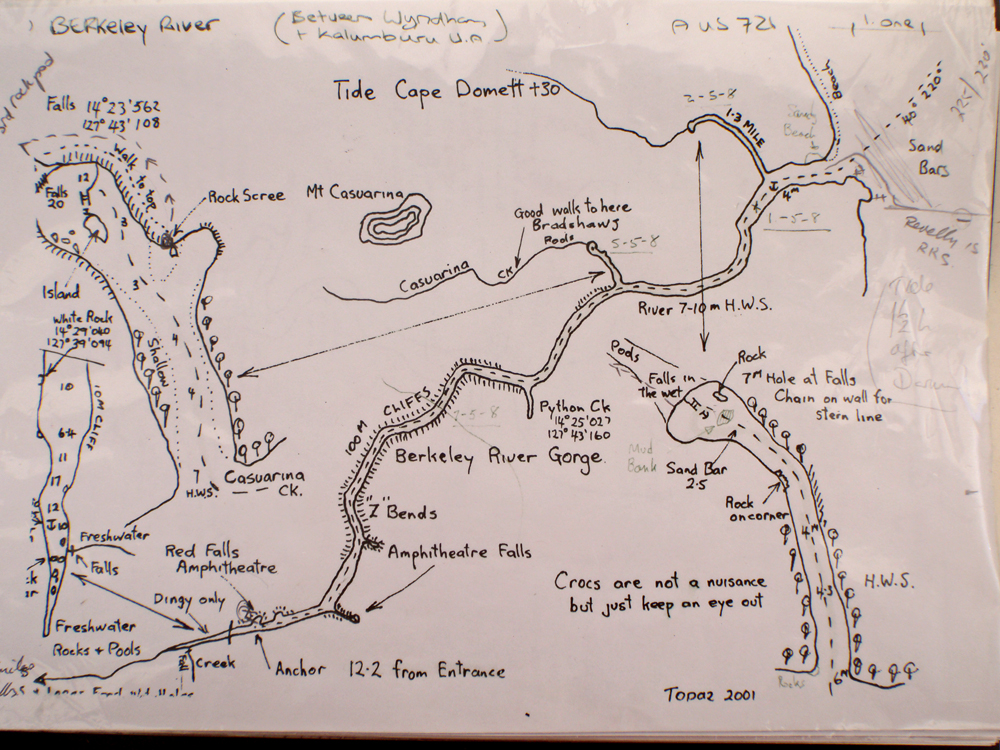 BERKELEY RIVER
(Between Wyndham
+ Kalumburu W.A)
AUS 721
1. one
Tide Cape Domett +30
Falls 14°23'562
127°43'108
Walk to top
Rock Scree
Falls
20
12
3
3
3
4
4
Island
Shallow
7
H.W.S.
Casuarina
CK.
Mt Casuarina
Good walk to here
Bradshaws
Pools
5-5-8
Casuarina
CK
2-5-8
1.3 MILE
Beach
Sandy
Beach
40°
220°
225/220°
Sand
Bars
4m
1-5-8
Reveley Is
RKS.
River 7-10m H.W.S.
White Rock
14°29'040
127°39'094
10
10M CLIFF
6.4
11
17
12
10
Freshwater
Falls
Freshwater
Rocks + Pools
100 M
CLIFFS
2-5-8
Python Ck
14°25'027
127°43'160
Berkeley River Gorge.
"Z" Bends
Amphitheatre Falls
Red Falls
Amphitheatre
Dingy only
Creek
Anchor
12.2 from Entrance
Pools
Falls in
the wet
Rock
7M Hole at Falls
Chain on wall for
stern line
Mud
Bank
Sand Bar
2.5
Rock
on corner
4M
4.3
6M
H.W.S.
Crocs are not a nuisance
but just keep an eye out
Rocks
Topaz 2001